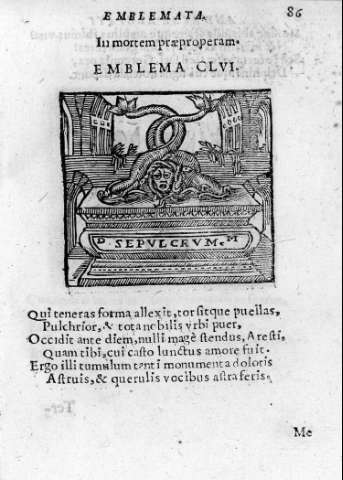 EMBLEMATA.
86
In mortem præproperam.
EMBLEMA CLVI.
D. SEPULCRVM. M
Qui teneras forma allexit, torsitque puellas,
Pulchrior, & tota nobilis vrbi puer,
Occidit ante diem, nulli magè flendus, Aresti,
Quam tibi, cui casto iunctus amore fuit.
Ergo illi tumulum tanti monumenta doloris
Astruis, & querulis vocibus astra feris.
Me